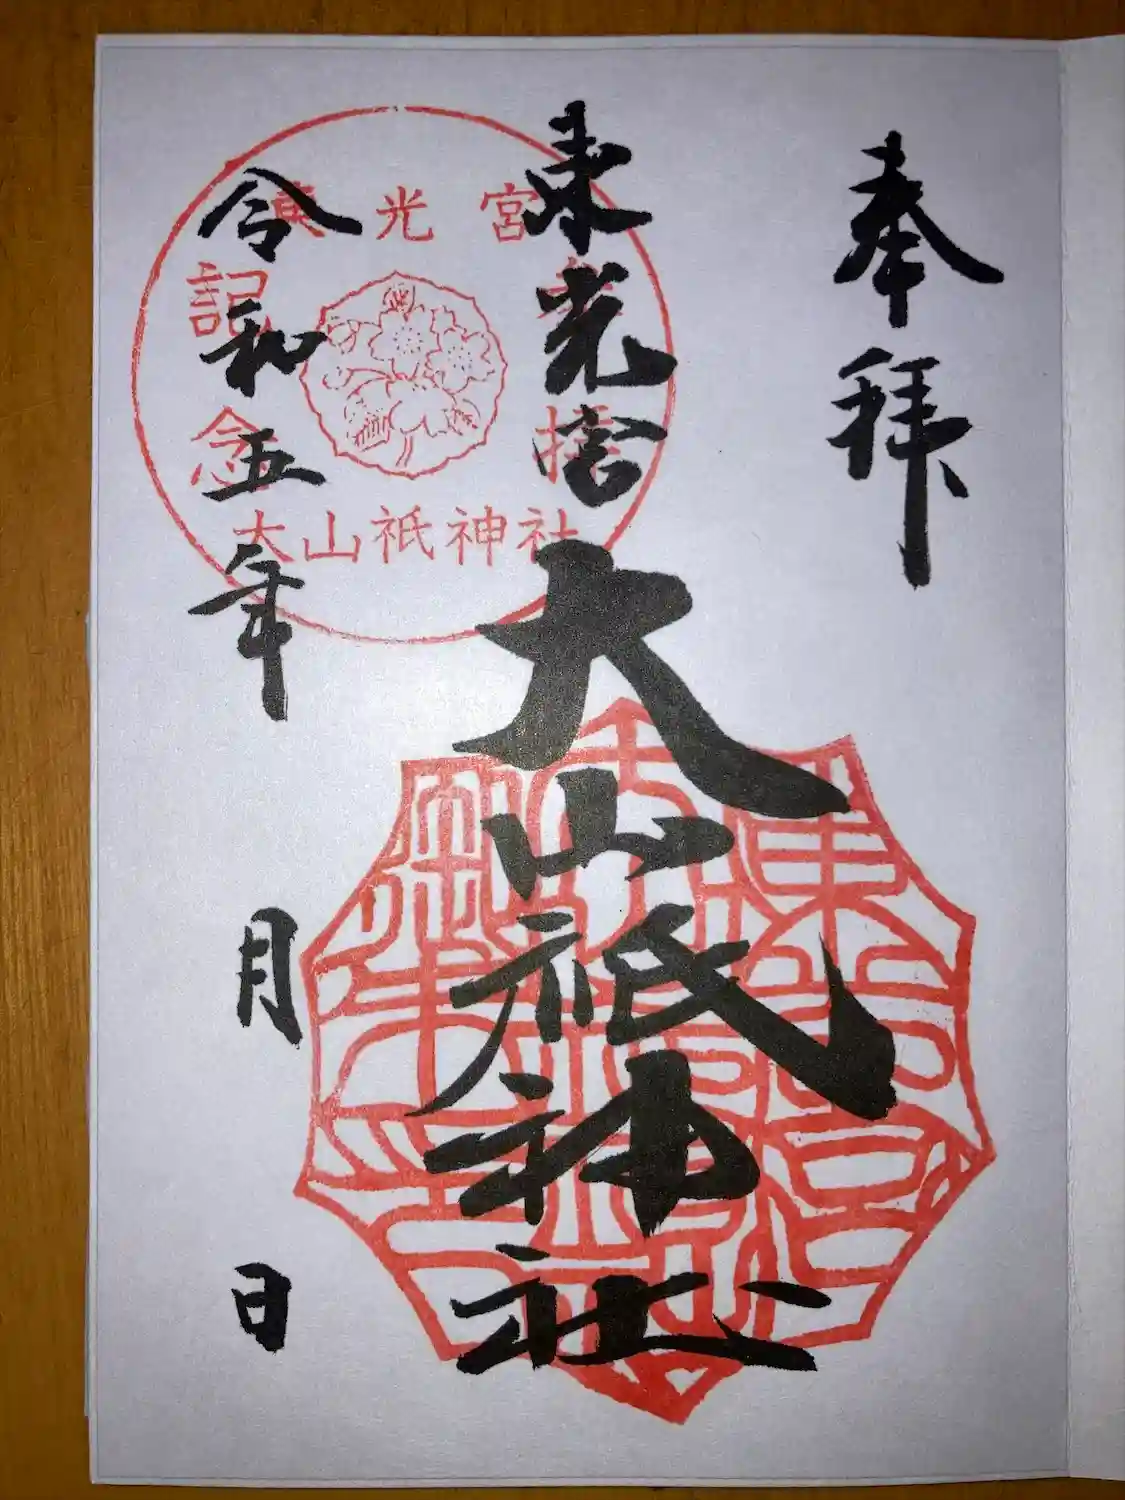 奉拝
東光宮
大山祇神社
令和五年
月
日
東光宮
参拝
記念
大山祇神社